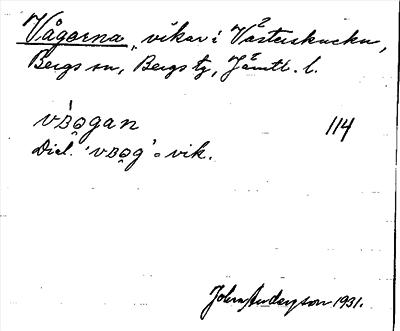 Vågarna, vikar i Västerskucku,
Bergs sn, Bergs tg, Jämtl. l.
vʙo̭gan 114
Dial. 'vʙo̭g' = vik.
John Anderzson 1931.